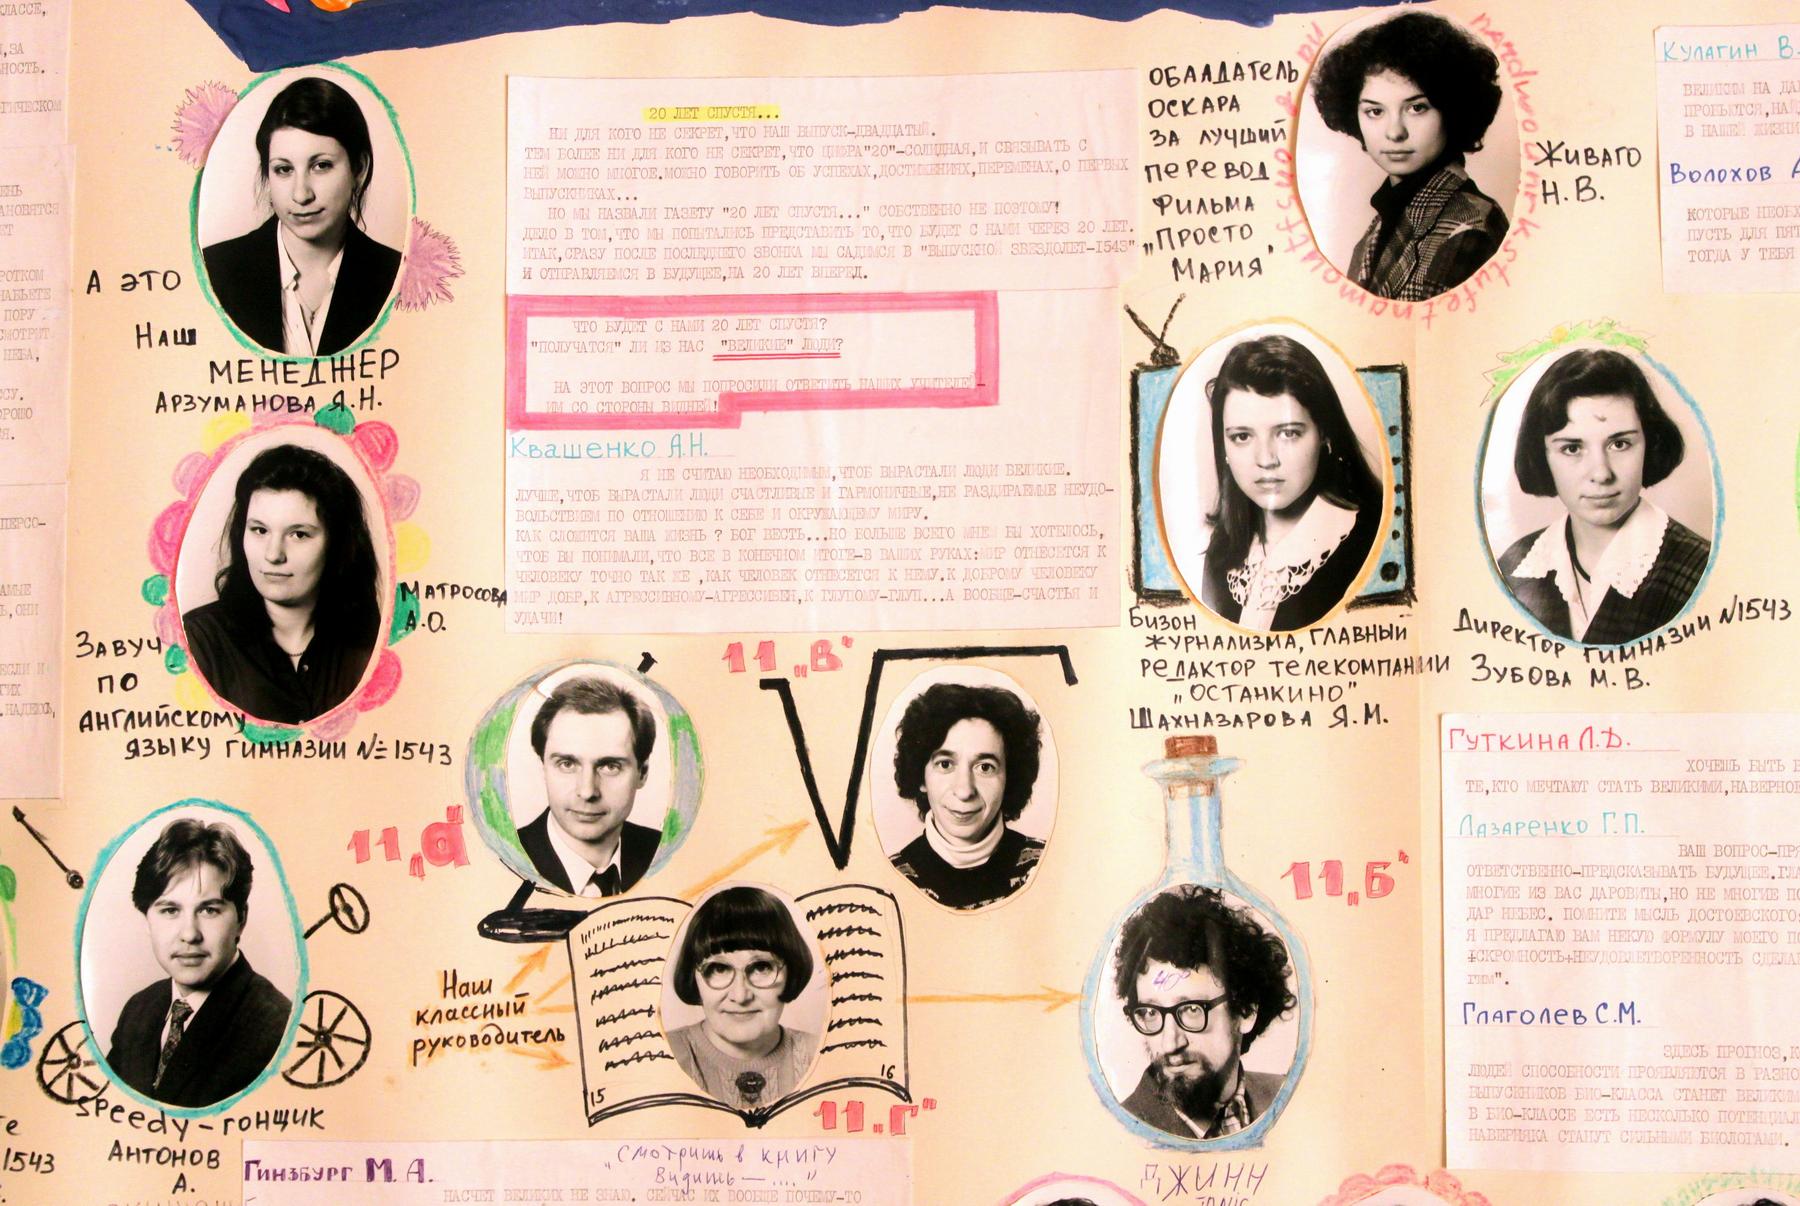 КЛАССЕ,
А ЭТО
НАШ
МЕНЕДЖЕР
АРЗУМАНОВА Я.Н.
МАТРОСОВА
А.О.
ЗАВУЧ
ПО
АНГЛИЙСКОМУ
ЯЗЫКУ ГИМНАЗИИ №1543
SPEEDY-ГОНЩИК
АНТОНОВ
А.
1543
20 ЛЕТ СПУСТЯ...
НИ ДЛЯ КОГО НЕ СЕКРЕТ,ЧТО НАШ ВЫПУСК-ДВАДЦАТЫЙ.
ТЕМ БОЛЕЕ НИ ДЛЯ КОГО НЕ СЕКРЕТ,ЧТО ЦИФРА"20"-СОЛИДНАЯ,И СВЯЗЫВАТЬ С
НЕЙ МОЖНО МНОГОЕ.МОЖНО ГОВОРИТЬ ОБ УСПЕХАХ,ДОСТИЖЕНИЯХ,ПЕРЕМЕНАХ,О ПЕРВЫХ
ВЫПУСКНИКАХ...
НО МЫ НАЗВАЛИ ГАЗЕТУ "20 ЛЕТ СПУСТЯ..." СОБСТВЕННО НЕ ПОЭТОМУ!
ДЕЛО В ТОМ,ЧТО МЫ ПОПЫТАЛИСЬ ПРЕДСТАВИТЬ ТО,ЧТО БУДЕТ С НАМИ ЧЕРЕЗ 20 ЛЕТ.
ИТАК,СРАЗУ ПОСЛЕ ПОСЛЕДНЕГО ЗВОНКА МЫ САДИМСЯ В "ВЫПУСКНОЙ ЗВЕЗДОЛЕТ-1543"
И ОТПРАВЛЯЕМСЯ В БУДУЩЕЕ,НА 20 ЛЕТ ВПЕРЕД.
ЧТО БУДЕТ С НАМИ 20 ЛЕТ СПУСТЯ?
"ПОЛУЧАТСЯ" ЛИ ИЗ НАС "ВЕЛИКИЕ" ЛЮДИ?
НА ЭТОТ ВОПРОС МЫ ПОПРОСИЛИ ОТВЕТИТЬ НАШИХ УЧИТЕЛЕЙ-
ИМ СО СТОРОНЫ ВИДНЕЙ!
Квашенко А.Н.
Я НЕ СЧИТАЮ НЕОБХОДИМЫМ,ЧТОБ ВЫРАСТАЛИ ЛЮДИ ВЕЛИКИЕ.
ЛУЧШЕ,ЧТОБ ВЫРАСТАЛИ ЛЮДИ СЧАСТЛИВЫЕ И ГАРМОНИЧНЫЕ,НЕ РАЗДИРАЕМЫЕ НЕУДО-
ВОЛЬСТВИЕМ ПО ОТНОШЕНИЮ К СЕБЕ И ОКРУЖАЮЩЕМУ МИРУ.
КАК СЛОЖИТСЯ ВАША ЖИЗНЬ ? БОГ ВЕСТЬ...НО БОЛЬШЕ ВСЕГО МНЕ БЫ ХОТЕЛОСЬ,
ЧТОБ ВЫ ПОНИМАЛИ,ЧТО ВСЕ В КОНЕЧНОМ ИТОГЕ-В ВАШИХ РУКАХ:МИР ОТНЕСЕТСЯ К
ЧЕЛОВЕКУ ТОЧНО ТАК ЖЕ ,КАК ЧЕЛОВЕК ОТНЕСЕТСЯ К НЕМУ.К ДОБРОМУ ЧЕЛОВЕКУ
МИР ДОБР,К АГРЕССИВНОМУ-АГРЕССИВЕН,К ГЛУПОМУ-ГЛУП...А ВООБЩЕ-СЧАСТЬЯ И
УДАЧИ!
11 „В"
11 „а"
11 „Б"
11 „Г"
Наш
классный
руководитель
15
16
40°
ДЖИНН
Гинзбург М.А.
„Смотришь в книгу
Видишь — ...."
НАСЧЕТ ВЕЛИКИХ НЕ ЗНАЮ. СЕЙЧАС ИХ ВООБЩЕ ПОЧЕМУ-ТО
ОБЛАДАТЕЛЬ
ОСКАРА
ЗА ЛУЧШИЙ
ПЕРЕВОД
ФИЛЬМА
„ПРОСТО
МАРИЯ"
ЖИВАГО
Н.В.
БИЗОН
ЖУРНАЛИЗМА, ГЛАВНЫЙ
РЕДАКТОР ТЕЛЕКОМПАНИИ
„ОСТАНКИНО"
ШАХНАЗАРОВА Я.М.
ДИРЕКТОР ГИМНАЗИИ №1543
ЗУБОВА М.В.
Кулагин В.
ВЕЛИКИМ НА
ПРОБЬЮТСЯ,
В НАШЕЙ ЖИЗНИ
Волохов А
КОТОРЫЕ
ПУСТЬ ДЛЯ
ТОГДА У ТЕБЯ
Гуткина Л.Д.
ХОЧЕШЬ БЫТЬ В
ТЕ,КТО МЕЧТАЮТ СТАТЬ ВЕЛИКИМИ,
Лазаренко Г.П.
ВАШ ВОПРОС-
ОТВЕТСТВЕННО-ПРЕДСКАЗЫВАТЬ БУДУЩЕЕ.
МНОГИЕ ИЗ ВАС ДАРОВИТЫ,НО НЕ МНОГИЕ
ДАР НЕБЕС. ПОМНИТЕ МЫСЛЬ ДОСТОЕВСКОГО:
Я ПРЕДЛАГАЮ ВАМ НЕКУЮ ФОРМУЛУ МОЕГО
+СКРОМНОСТЬ+НЕУДОВЛЕТВОРЕННОСТЬ
Глаголев С.М.
ЗДЕСЬ ПРОГНОЗ,
ЛЮДЕЙ СПОСОБНОСТИ ПРОЯВЛЯЮТСЯ В
ВЫПУСКНИКОВ БИО-КЛАССА СТАНЕТ
В БИО-КЛАССЕ ЕСТЬ НЕСКОЛЬКО
НАВЕРНЯКА СТАНУТ СИЛЬНЫМИ БИОЛОГАМИ.